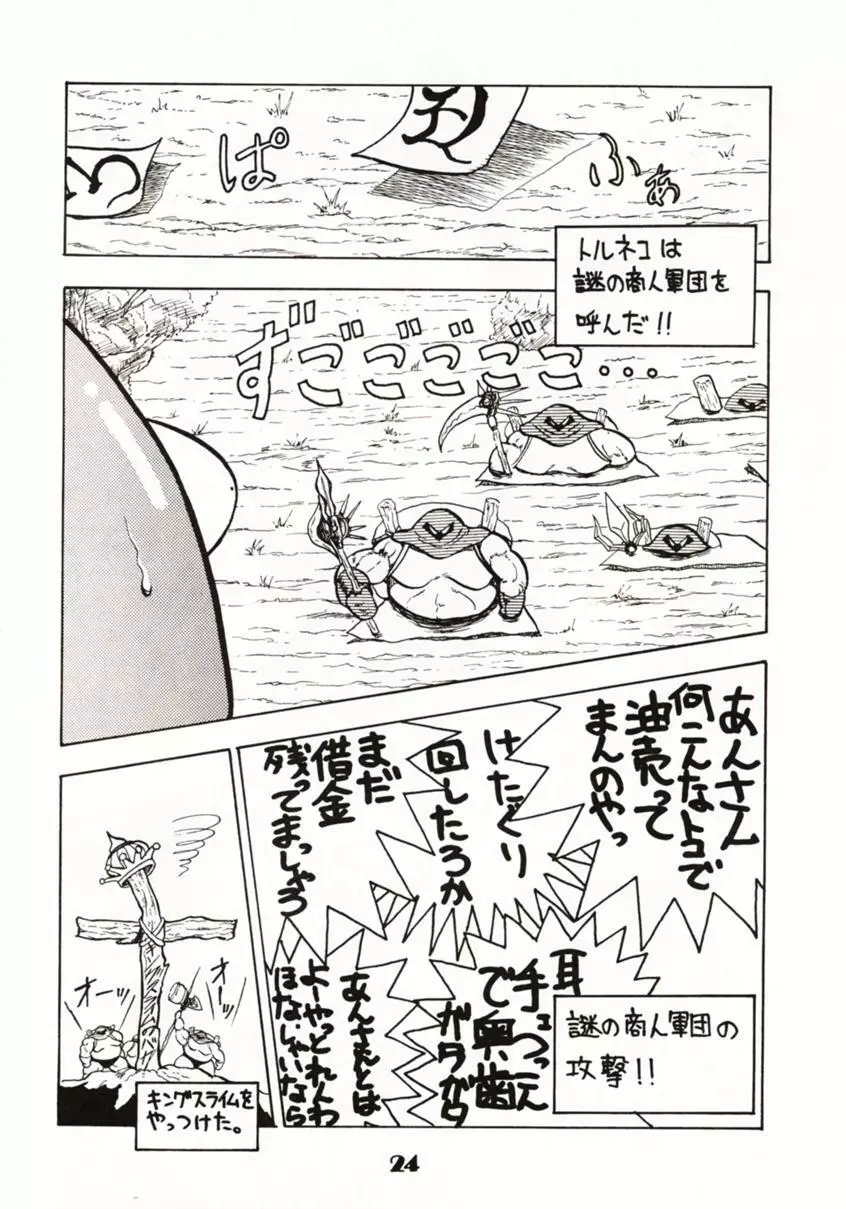 ふぁ
ぱ
トルネコは
謎の商人軍団を
呼んだ!!
ずごごごごご…
あんさん
何こんなトコで
油売って
まんのやっ
けたぐり
回したろか
まだ
借金
残ってまっしゃろ
耳
手ェつっこん
で奥歯
ガタガタ
あんさんとは
よーやっとれんわ
ほないしゃいなら
謎の商人軍団の
攻撃!!
オーッ
オーッ
キングスライムを
やっつけた。
24